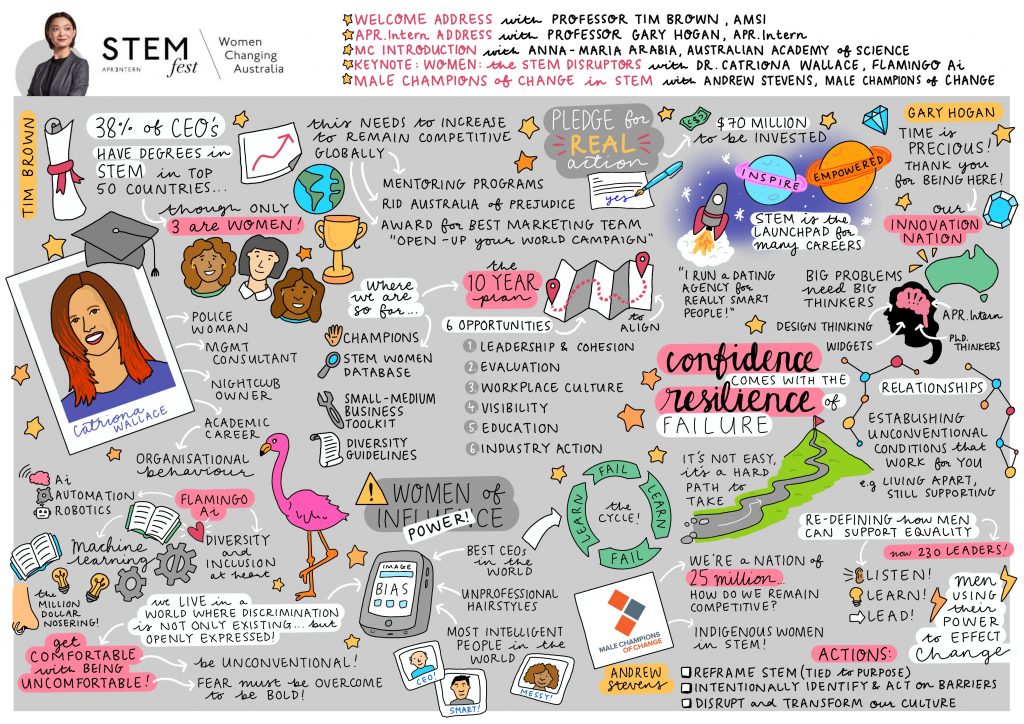 STEM
fest
APR.INTERN
Women
Changing
Australia
WELCOME ADDRESS with PROFESSOR TIM BROWN, AMSI
APR.Intern ADDRESS with PROFESSOR GARY HOGAN, APR.Intern
MC INTRODUCTION with ANNA-MARIA ARABIA, AUSTRALIAN ACADEMY of SCIENCE
KEYNOTE: WOMEN: the STEM DISRUPTORS with DR. CATRIONA WALLACE, FLAMINGO Ai
MALE CHAMPIONS of CHANGE in STEM with ANDREW STEVENS, MALE CHAMPIONS of CHANGE
TIM BROWN
38% of CEO's
HAVE DEGREES in
STEM in TOP
50 COUNTRIES...
though ONLY
3 are WOMEN!
this NEEDS to INCREASE
to REMAIN COMPETITIVE
GLOBALLY
MENTORING PROGRAMS
RID AUSTRALIA of PREJUDICE
AWARD for BEST MARKETING TEAM
"OPEN-UP your WORLD CAMPAIGN"
PLEDGE for
REAL
action
yes
C$?
$70 MILLION
to be INVESTED
INSPIRE
EMPOWERED
STEM is the
LAUNCHPAD for
many CAREERS
GARY HOGAN
TIME is
PRECIOUS!
THANK you
for BEING HERE!
our
INNOVATION
NATION
"I RUN a DATING
AGENCY for
REALLY SMART
PEOPLE!"
BIG PROBLEMS
need BIG
THINKERS
DESIGN THINKING
WIDGETS
APR.Intern
Ph.D.
THINKERS
Where
we are
so far...
CHAMPIONS
STEM WOMEN
DATABASE
SMALL-MEDIUM
BUSINESS
TOOLKIT
DIVERSITY
GUIDELINES
the
10 YEAR
plan
6 OPPORTUNITIES
to
ALIGN
1 LEADERSHIP & COHESION
2 EVALUATION
3 WORKPLACE CULTURE
4 VISIBILITY
5 EDUCATION
6 INDUSTRY ACTION
Catriona
WALLACE
POLICE
WOMAN
MGMT
CONSULTANT
NIGHTCLUB
OWNER
ACADEMIC
CAREER
ORGANISATIONAL
behaviour
confidence
COMES WITH THE
resilience of
FAILURE
IT'S NOT EASY,
it's a HARD
PATH to
TAKE
RELATIONSHIPS
ESTABUSHING
UNCONVENTIONAL
CONDITIONS that
WORK for YOU
e.g LIVING APART,
STILL SUPPORTING
Ai
AUTOMATION
ROBOTICS
FLAMINGO
Ai
Machine
learning
DIVERSITY
and
INCLUSION
at heart
the
MILLION
DOLLAR
NOSERING!
we LIVE in a
WORLD WHERE DISCRIMINATION
is NOT ONLY EXISTING... but
OPENLY EXPRESSED!
get
COMFORTABLE
with BEING
UNCOMFORTABLE!
be UNCONVENTIONAL!
FEAR must be OVERCOME
to be BOLD!
WOMEN of
INFLUENCE
POWER!
FAIL
LEARN
FAIL
LEARN
the
CYCLE!
IMAGE
BIAS
BEST CEOs
in the
WORLD
UNPROFESSIONAL
HAIRSTYLES
MOST INTELLIGENT
PEOPLE in the
WORLD
CEO!
SMART!
MESSY!
MALE CHAMPIONS
OF CHANGE
ANDREW
Stevens
WE'RE a NATION of
25 million...
HOW DO WE REMAIN
COMPETITIVE?
INDIGENOUS WOMEN
in STEM!
RE-DEFINING how MEN
CAN SUPPORT EQUALITY
now 230 LEADERS!
LISTEN!
LEARN!
LEAD!
men
USING
their
POWER
to EFFECT
Change
ACTIONS:
REFRAME STEM (TIED to PURPOSE)
INTENTIONALLY IDENTIFY & ACT on BARRIERS
DISRUPT and TRANSFORM our CULTURE